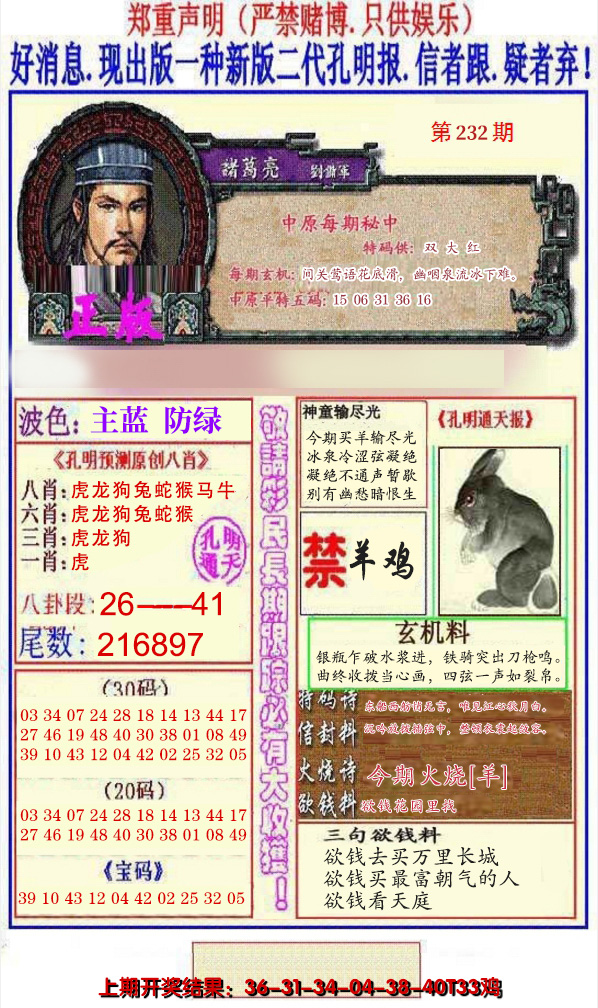 郑重声明（严禁赌博.只供娱乐）
好消息.现出版一种新版二代孔明报.信者跟.疑者弃!
第 232 期
諸葛亮 劉備軍
中原每期秘中
特码供: 双 大 红
每期玄机: 间关莺语花底滑, 幽咽泉流冰下难。
中原平特五码: 15 06 31 36 16
正版
波色: 主蓝 防绿
《孔明预测原创八肖》
八肖: 虎龙狗兔蛇猴马牛
六肖: 虎龙狗兔蛇猴
三肖: 虎龙狗
一肖: 虎
孔明
通天
八卦段: 26——41
尾数: 216897
（30码）
03 34 07 24 28 18 14 13 44 17
27 46 19 48 40 30 38 01 08 49
39 10 43 12 04 42 02 25 32 05
（20码）
03 34 07 24 28 18 14 13 44 17
27 46 19 48 40 30 38 01 08 49
《宝码》
39 10 43 12 04 42 02 25 32 05
敬請彩民長期跟踪必有大收獲!
神童输尽光
今期买羊输尽光
冰泉冷涩弦凝绝
凝绝不通声暂歇
别有幽愁暗恨生
《孔明通天报》
禁 羊 鸡
玄机料
银瓶乍破水浆迸, 铁骑突出刀枪鸣。
曲终收拨当心画, 四弦一声如裂帛。
特码诗 东船西舫悄无言, 唯见江心秋月白。
信封料 沉吟放拨插弦中, 整顿衣裳起敛容。
火烧诗 今期火烧[羊]
欲钱料 欲钱花园里找
三句欲钱料
欲钱去买万里长城
欲钱买最富朝气的人
欲钱看天庭
上期开奖结果: 36-31-34-04-38-40T33鸡